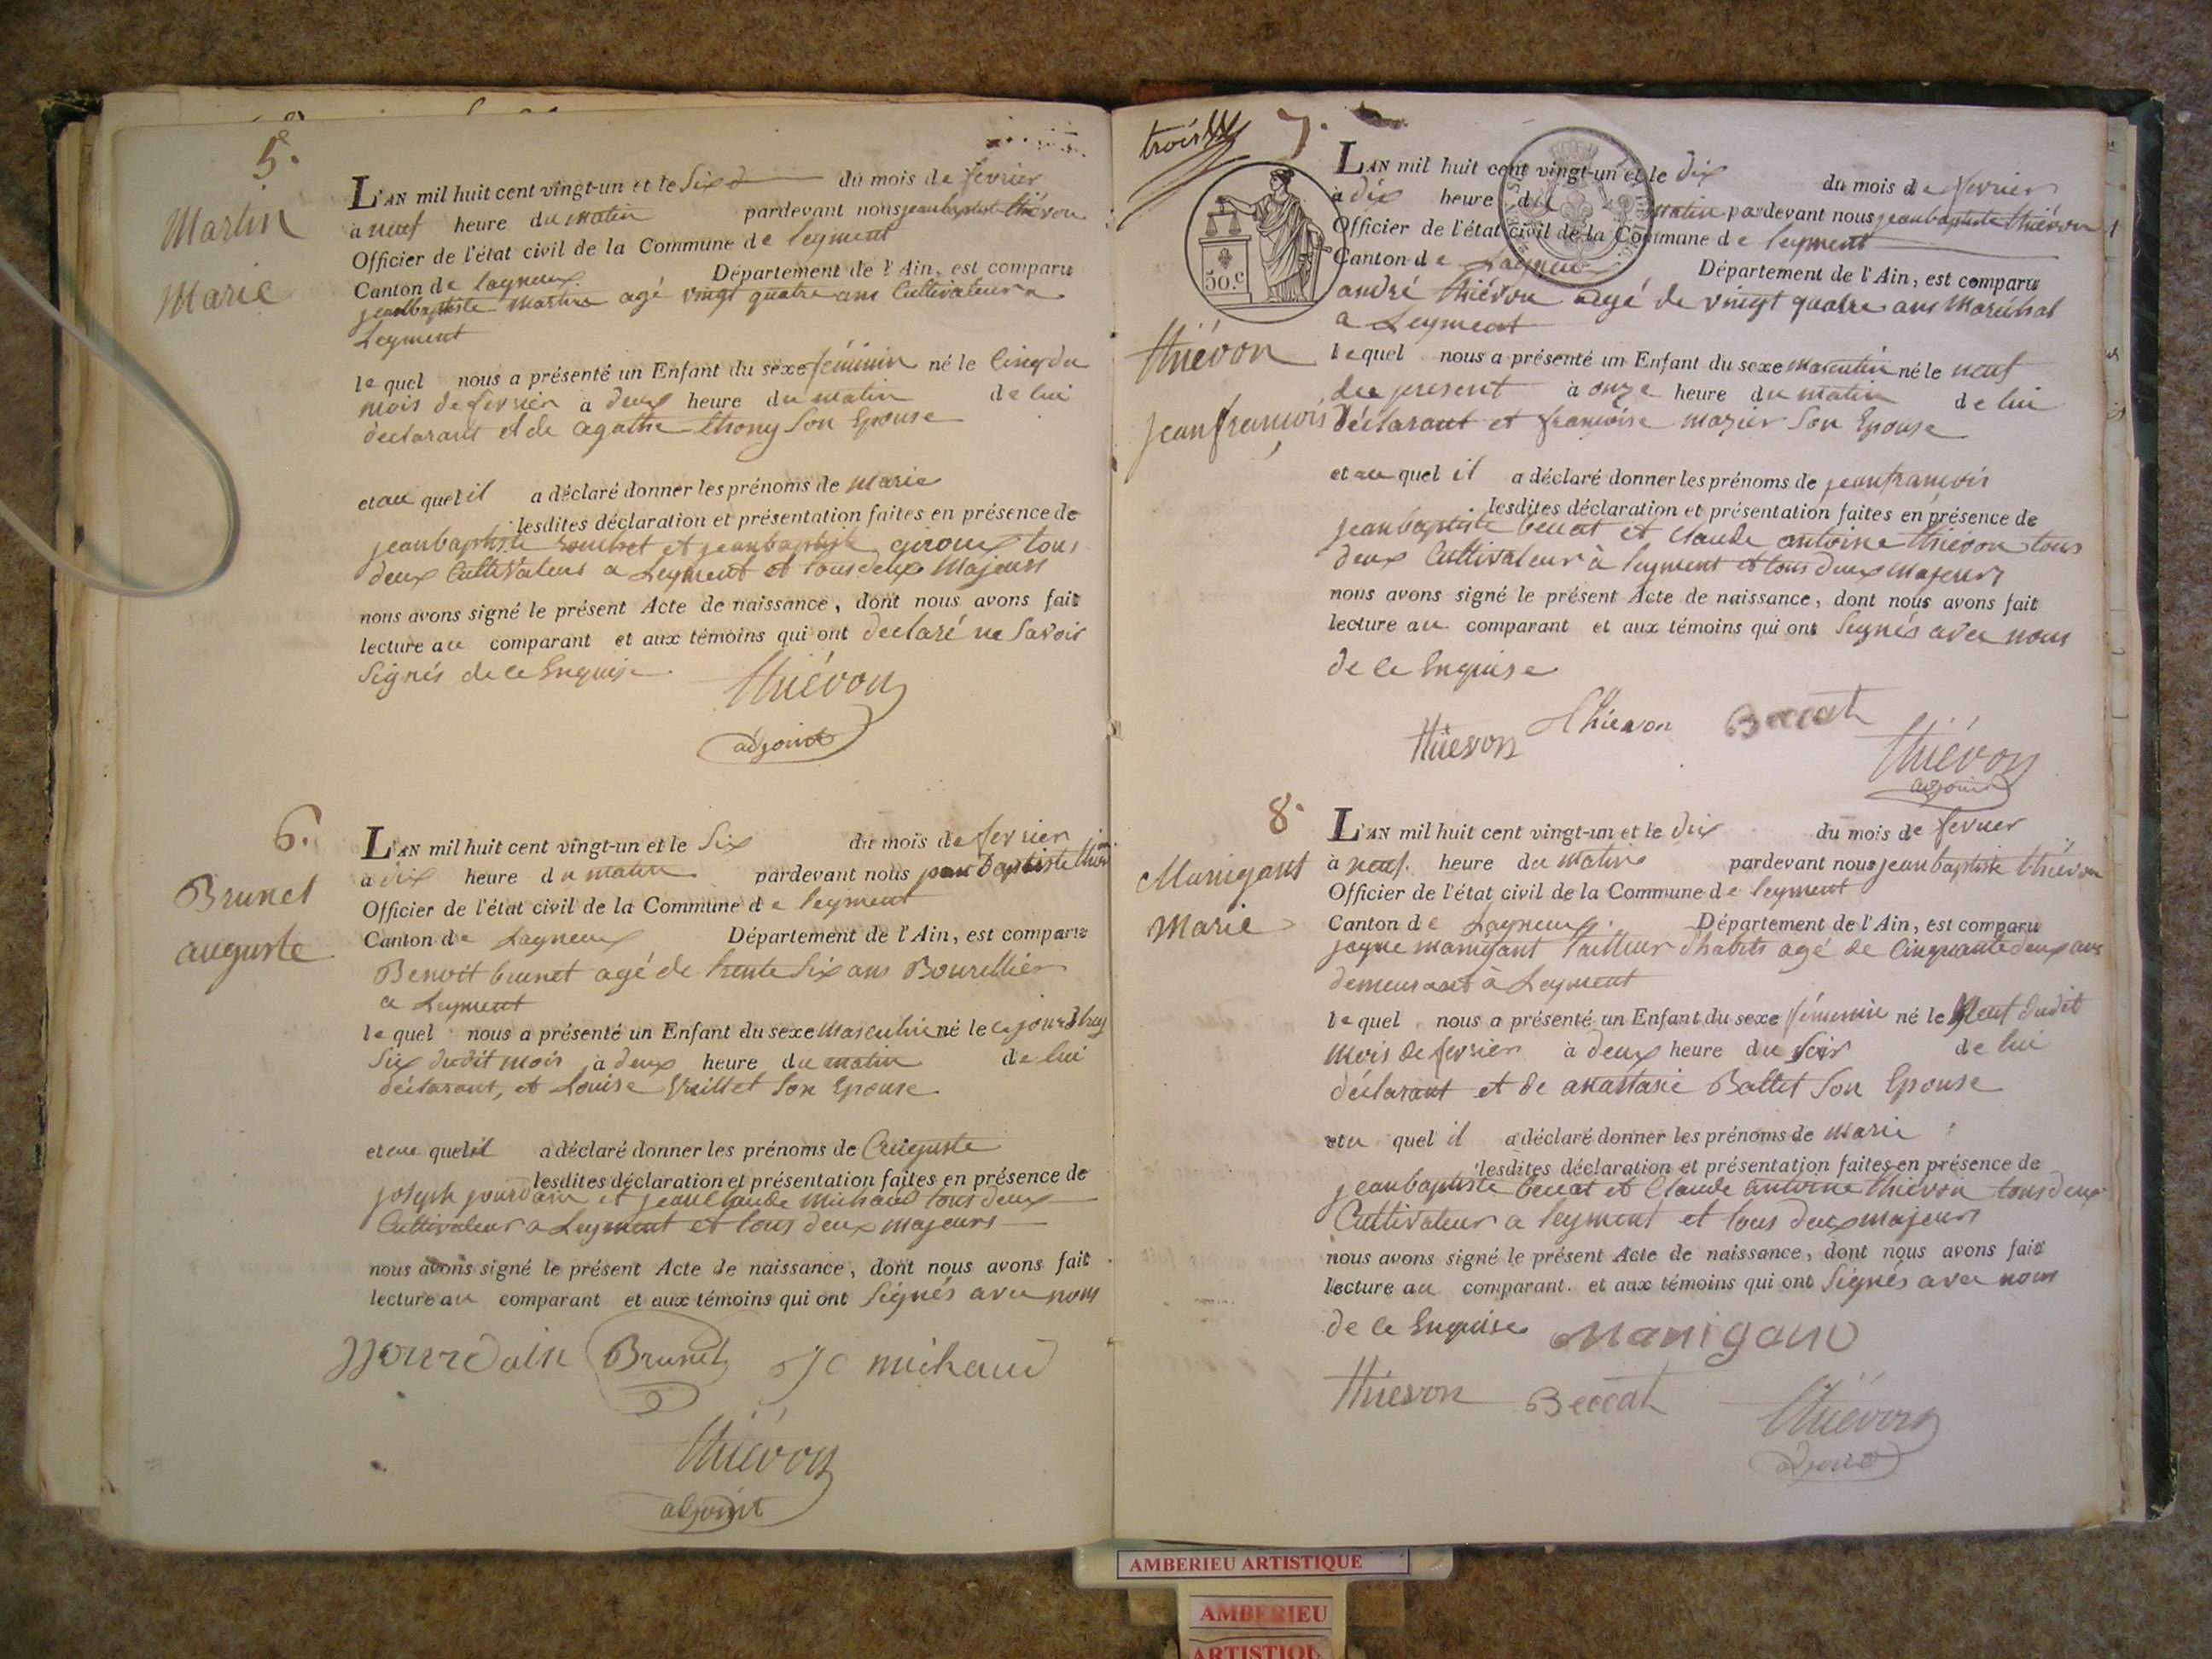 5.
Martin
Marie
L'AN mil huit cent vingt-un et le Six du mois de fevrier
à neuf heure du matin pardevant nous jeanbaptiste thiévon
Officier de l'état civil de la Commune de leyment
Canton de lagneux Département de l'Ain, est comparu
jeanbaptiste Martin agé vingt quatre ans Cultivateur a
Leyment
lequel nous a présenté un Enfant du sexe féminin né le Cinq du
mois de fevrier à deux heure du matin de lui
déclarant et de agathe Son Epouse
et au quel il a déclaré donner les prénoms de Marie
lesdites déclaration et présentation faites en présence de
jeanbaptiste et jeanbaptiste giroux tous
deux Cultivateurs a Leyment et tous deux Majeurs
nous avons signé le présent Acte de naissance, dont nous avons fait
lecture au comparant et aux témoins qui ont declaré ne Savoir
Signés de ce Enquise
thiévon
adjoint
6.
Brunet
auguste
L'AN mil huit cent vingt-un et le Six du mois de fevrier
à dix heure du matin pardevant nous jean Baptiste thiévon
Officier de l'état civil de la Commune de leyment
Canton de Lagneux Département de l'Ain, est comparu
Benoit brunet agé de trente Six ans Bourellier
a Leyment
lequel nous a présenté un Enfant du sexe Masculin né le cejourdhuy
Six dudit mois à deux heure du matin de lui
déclarant, et Louise Vuillet Son Epouse
et au quel il a déclaré donner les prénoms de Auguste
lesdites déclaration et présentation faites en présence de
joseph jourdain et jean Claude Michaud tous deux
Cultivateur a Leyment et tous deux majeurs
nous avons signé le présent Acte de naissance, dont nous avons fait
lecture au comparant et aux témoins qui ont Signés avec nous
JJourdain Brunet JC michaud
thiévon
adjoint
trois
7.
50.c
thiévon
jeanfrançois
L'AN mil huit cent vingt-un et le dix du mois de fevrier
à dix heure du matin pardevant nous jeanbaptiste thiévon
Officier de l'état civil de la Commune de leyment
Canton de Lagneux Département de l'Ain, est comparu
andré thiévon agé de vingt quatre ans Maréchal
a Leyment
lequel nous a présenté un Enfant du sexe masculin né le neuf
du present à onze heure du matin de lui
déclarant et françoise mazier Son Epouse
et au quel il a déclaré donner les prénoms de jeanfrançois
lesdites déclaration et présentation faites en présence de
jeanbaptiste beccat et Claude antoine thiévon tous
deux Cultivateur à leyment et tous deux majeurs
nous avons signé le présent Acte de naissance, dont nous avons fait
lecture au comparant et aux témoins qui ont Signés avec nous
de ce Enquise
thievon thievon Beccat
thiévon
adjoint
8.
Manigant
Marie
L'AN mil huit cent vingt-un et le dix du mois de fevrier
à neuf heure du matin pardevant nous jeanbaptiste thiévon
Officier de l'état civil de la Commune de leyment
Canton de Lagneux Département de l'Ain, est comparu
manigant tailleur dhabits agé de Cinquante deux ans
demeurant à Leyment
lequel nous a présenté un Enfant du sexe féminin né le Neuf dudit
mois de fevrier à deux heure du Soir de lui
déclarant et de anastasie Ballet Son Epouse
et au quel il a déclaré donner les prénoms de Marie
lesdites déclaration et présentation faites en présence de
jeanbaptiste beccat et Claude antoine thievon tous deux
Cultivateur a leyment et tous deux majeurs
nous avons signé le présent Acte de naissance, dont nous avons fait
lecture au comparant et aux témoins qui ont Signés avec nous
de ce Enquise Manigand
thievon Beccat thiévon
adjoint
AMBERIEU ARTISTIQUE
AMBERIEU
ARTISTIQU